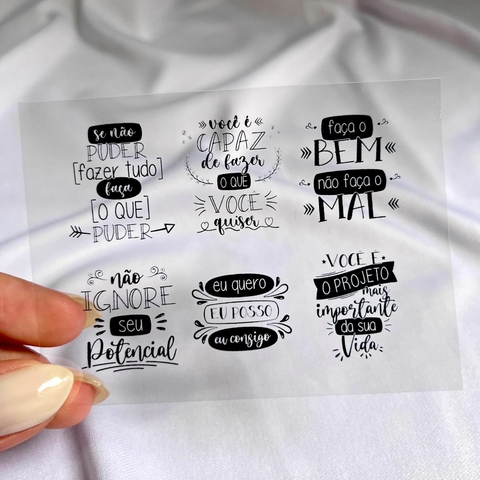 se não
PUDER
[fazer tudo]
faça
[O QUE]
PUDER
você é
CAPAZ
de fazer
O QUE
VOCÊ
quiser
faça o
BEM
não faça o
MAL
não
IGNORE
seu
Potencial
eu quero
EU POSSO
eu consigo
VOCÊ É
O PROJETO
mais
importante
da sua
Vida